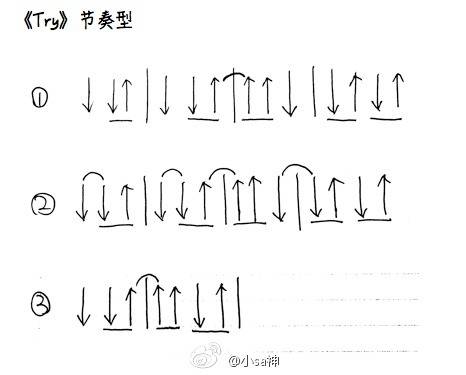 《Try》节奏型
① ↓ ↓↑ | ↓ ↓↑ | ↑↑ ↓ | ↓↑ ↓↑
② ↓ ↓↑ | ↓ ↓↑ | ↑↑ ↓ | ↓↑ ↓↑
③ ↓ ↓↑ | ↑↑ ↓↑ |
@小sa神